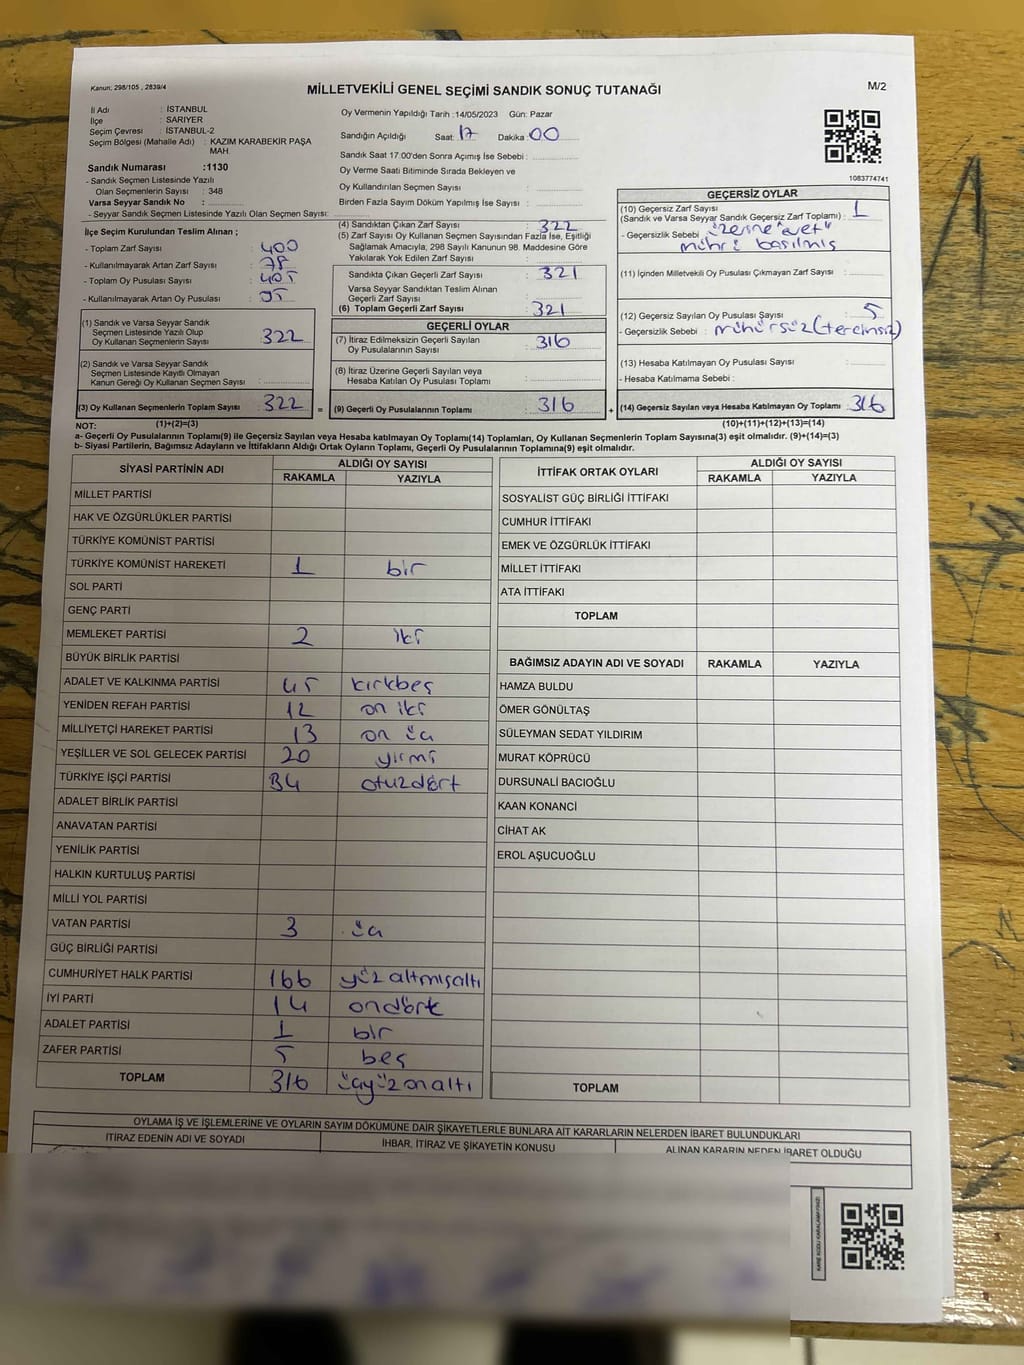 Kanun; 298/105 , 2839/4
MİLLETVEKİLİ GENEL SEÇİMİ SANDIK SONUÇ TUTANAĞI
M/2
İl Adı : İSTANBUL
İlçe : SARIYER
Seçim Çevresi : İSTANBUL-2
Seçim Bölgesi (Mahalle Adı) : KAZIM KARABEKİR PAŞA MAH.
Sandık Numarası :1130
- Sandık Seçmen Listesinde Yazılı
Olan Seçmenlerin Sayısı : 348
Varsa Seyyar Sandık No :
- Seyyar Sandık Seçmen Listesinde Yazılı Olan Seçmen Sayısı:
Oy Vermenin Yapıldığı Tarih :14/05/2023 Gün: Pazar
Sandığın Açıldığı Saat: 17 Dakika : 00
Sandık Saat 17:00'den Sonra Açımış İse Sebebi :
Oy Verme Saati Bitiminde Sırada Bekleyen ve
Oy Kullandırılan Seçmen Sayısı :
Birden Fazla Sayım Döküm Yapılmış İse Sayısı :
1083774741
İlçe Seçim Kurulundan Teslim Alınan ;
- Toplam Zarf Sayısı : 400
- Kullanılmayarak Artan Zarf Sayısı : 78
- Toplam Oy Pusulası Sayısı : 405
- Kullanılmayarak Artan Oy Pusulası :
(1) Sandık ve Varsa Seyyar Sandık
Seçmen Listesinde Yazılı Olup
Oy Kullanan Seçmenlerin Sayısı : 322
(2) Sandık ve Varsa Seyyar Sandık
Seçmen Listesinde Kayıtlı Olmayan
Kanun Gereği Oy Kullanan Seçmen Sayısı :
(3) Oy Kullanan Seçmenlerin Toplam Sayısı : 322
(4) Sandıktan Çıkan Zarf Sayısı : 322
(5) Zarf Sayısı Oy Kullanan Seçmen Sayısından Fazla İse, Eşitliği
Sağlamak Amacıyla; 298 Sayılı Kanunun 98. Maddesine Göre
Yakılarak Yok Edilen Zarf Sayısı :
Sandıkta Çıkan Geçerli Zarf Sayısı : 321
Varsa Seyyar Sandıktan Teslim Alınan
Geçerli Zarf Sayısı :
(6) Toplam Geçerli Zarf Sayısı : 321
GEÇERLİ OYLAR
(7) İtiraz Edilmeksizin Geçerli Sayılan
Oy Pusulalarının Sayısı : 316
(8) İtiraz Üzerine Geçerli Sayılan veya
Hesaba Katılan Oy Pusulası Toplamı :
= (9) Geçerli Oy Pusulalarının Toplamı : 316
GEÇERSİZ OYLAR
(10) Geçersiz Zarf Sayısı
(Sandık ve Varsa Seyyar Sandık Geçersiz Zarf Toplamı) : 1
- Geçersizlik Sebebi : üzerine "evet"
mührü basılmış
(11) İçinden Milletvekili Oy Pusulası Çıkmayan Zarf Sayısı :
(12) Geçersiz Sayılan Oy Pusulası Sayısı : 5
- Geçersizlik Sebebi : mühürsüz (tercihsiz)
(13) Hesaba Katılmayan Oy Pusulası Sayısı :
- Hesaba Katılmama Sebebi :
+ (14) Geçersiz Sayılan veya Hesaba Katılmayan Oy Toplamı : 316
NOT: (1)+(2)=(3)
(10)+(11)+(12)+(13)=(14)
a- Geçerli Oy Pusulalarının Toplamı(9) ile Geçersiz Sayılan veya Hesaba katılmayan Oy Toplamı(14) Toplamları, Oy Kullanan Seçmenlerin Toplam Sayısına(3) eşit olmalıdır. (9)+(14)=(3)
b- Siyasi Partilerin, Bağımsız Adayların ve İttifakların Aldığı Ortak Oyların Toplamı, Geçerli Oy Pusulasının Toplamına(9) eşit olmalıdır.
SİYASİ PARTİNİN ADI ALDIĞI OY SAYISI
RAKAMLA YAZIYLA
MİLLET PARTİSİ
HAK VE ÖZGÜRLÜKLER PARTİSİ
TÜRKİYE KOMÜNİST PARTİSİ
TÜRKİYE KOMÜNİST HAREKETİ 1 bir
SOL PARTİ
GENÇ PARTİ
MEMLEKET PARTİSİ 2 iki
BÜYÜK BİRLİK PARTİSİ
ADALET VE KALKINMA PARTİSİ 45 kırkbeş
YENİDEN REFAH PARTİSİ 12 on iki
MİLLİYETÇİ HAREKET PARTİSİ 13 on üç
YEŞİLLER VE SOL GELECEK PARTİSİ 20 yirmi
TÜRKİYE İŞÇİ PARTİSİ 34 otuzdört
ADALET BİRLİK PARTİSİ
ANAVATAN PARTİSİ
YENİLİK PARTİSİ
HALKIN KURTULUŞ PARTİSİ
MİLLİ YOL PARTİSİ
VATAN PARTİSİ 3 üç
GÜÇ BİRLİĞİ PARTİSİ
CUMHURİYET HALK PARTİSİ 166 yüz altmışaltı
İYİ PARTİ 14 ondört
ADALET PARTİSİ 1 bir
ZAFER PARTİSİ 5 beş
TOPLAM 316 üçyüz onaltı
İTTİFAK ORTAK OYLARI ALDIĞI OY SAYISI
RAKAMLA YAZIYLA
SOSYALIST GÜÇ BİRLİĞİ İTTİFAKI
CUMHUR İTTİFAKI
EMEK VE ÖZGÜRLÜK İTTİFAKI
MİLLET İTTİFAKI
ATA İTTİFAKI
TOPLAM
BAĞIMSIZ ADAYIN ADI VE SOYADI RAKAMLA YAZIYLA
HAMZA BULDU
ÖMER GÖNÜLTAŞ
SÜLEYMAN SEDAT YILDIRIM
MURAT KÖPRÜCÜ
DURSUNALİ BACIOĞLU
KAAN KONANCİ
CİHAT AK
EROL AŞUCUOĞLU
TOPLAM
OYLAMA İŞ VE İŞLEMLERİNE VE OYLARIN SAYIM DÖKÜMÜNE DAİR ŞİKAYETLERLE BUNLARA AİT KARARLARIN NELERDEN İBARET BULUNDUKLARI
İTİRAZ EDENİN ADI VE SOYADI İHBAR, İTİRAZ VE ŞİKAYETİN KONUSU ALINAN KARARIN NEDEN İBARET OLDUĞU